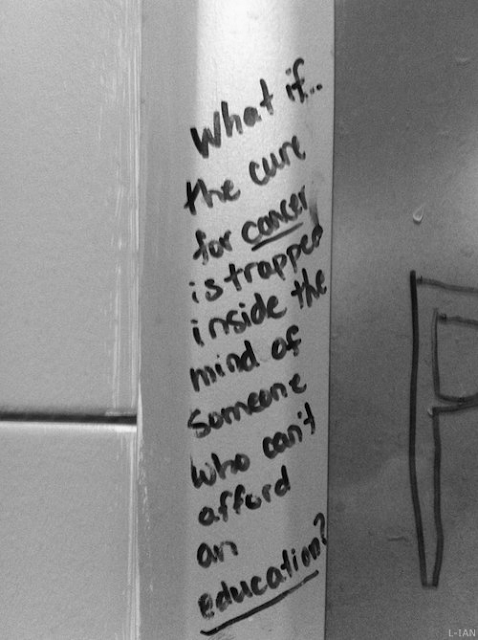 What if..
the cure
for cancer
is trapped
inside the
mind of
someone
who can't
afford
an
education?
P
L-IAN